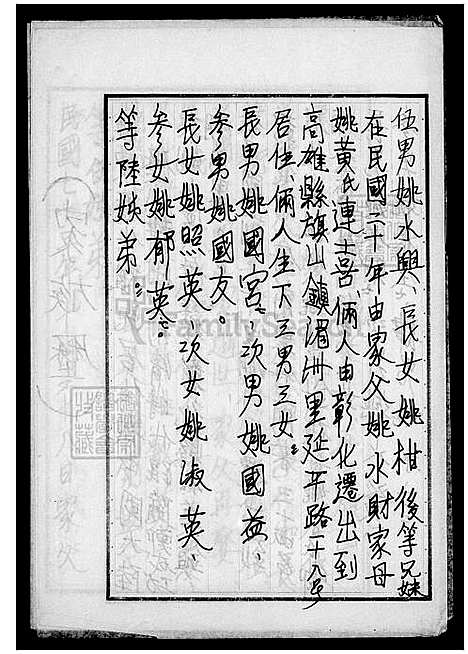 伍男姚水興、長女姚柑後等兄妹
在民國二十年由家父姚水財家母
姚黃氏連喜、倆人由彰化遷出到
高雄縣旗山鎮湄洲里延平路一十八号
居住、倆人生下三男三女。
長男姚國宮、次男姚國益、
參男姚國友。
長女姚照英、次女姚淑英、
參女姚郁英。
等陸姊弟。